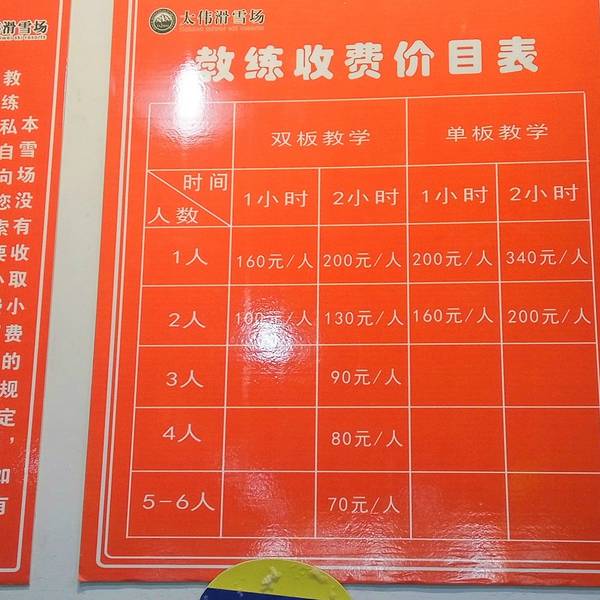 滑雪场
教
练
私本
自雪
向场
您没
索有
要收
小取
费小
费
的
规
定
，
如
有
太伟滑雪场
教练收费价目表
双板教学 单板教学
时间
人数
1小时 2小时 1小时 2小时
1人 160元/人 200元/人 200元/人 340元/人
2人 100元/人 130元/人 160元/人 200元/人
3人 90元/人
4人 80元/人
5-6人 70元/人